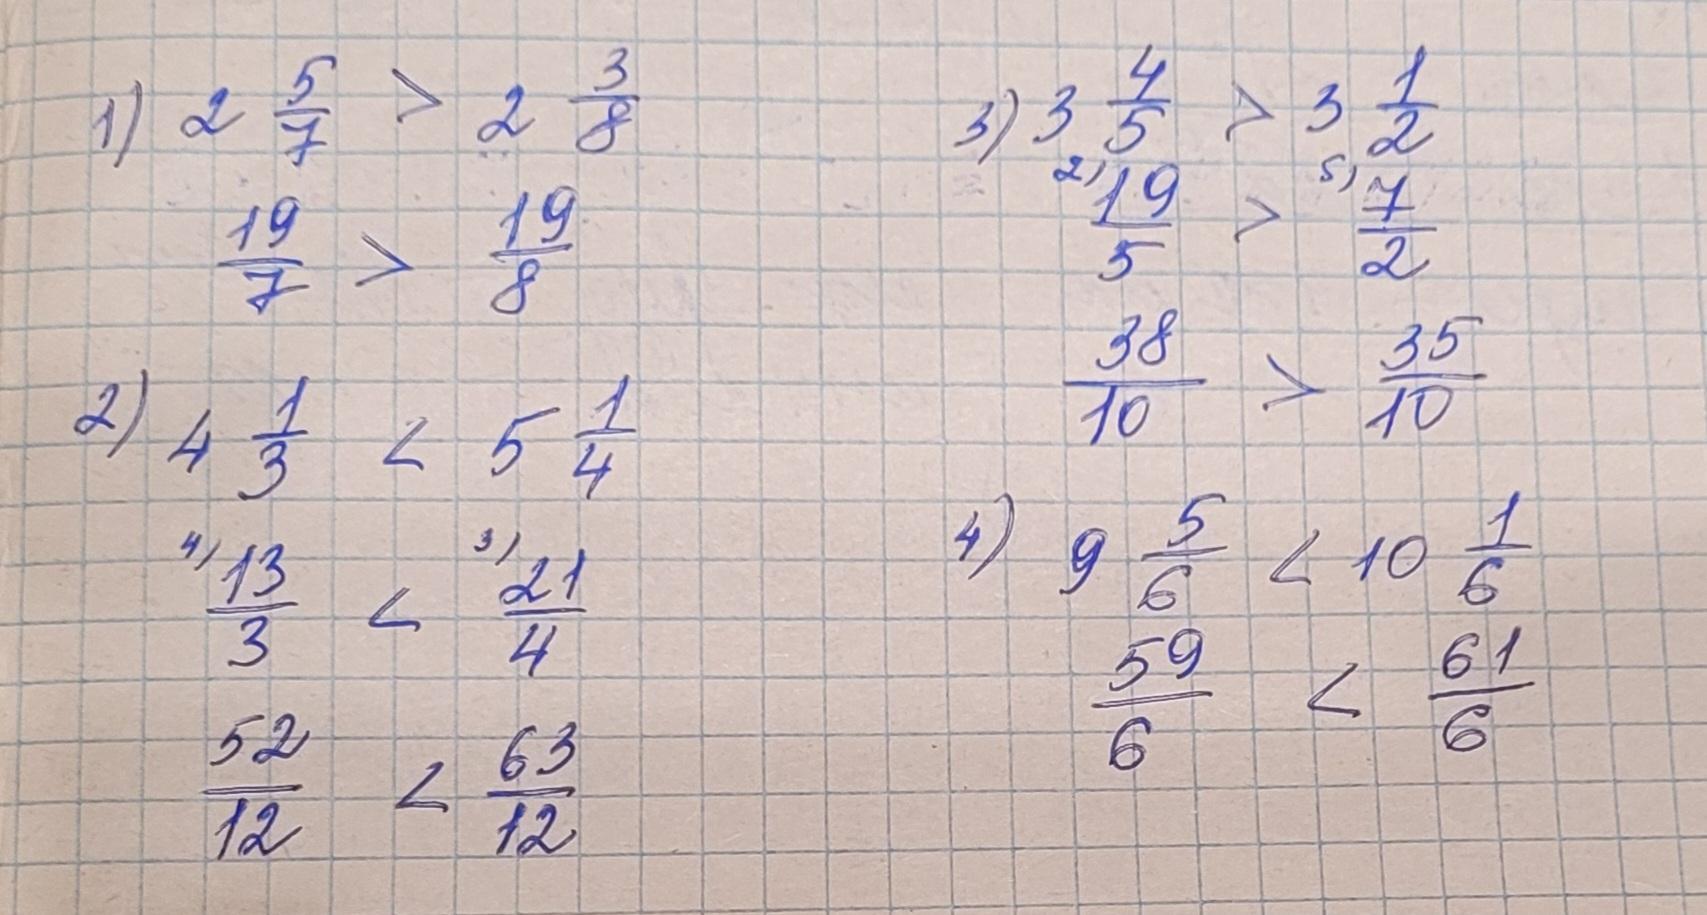 1) 2 5/7 > 2 3/8
19/7 > 19/8
2) 4 1/3 < 5 1/4
4) 13/3 < 3) 21/4
52/12 < 63/12
3) 3 4/5 > 3 1/2
2) 19/5 > 5) 7/2
38/10 > 35/10
4) 9 5/6 < 10 1/6
59/6 < 61/6